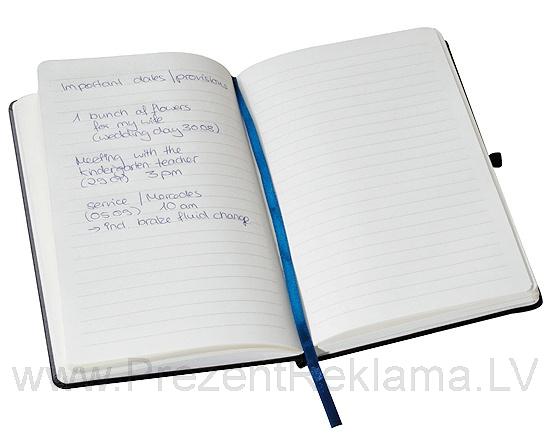 Important dates / provisions
1 bunch of flowers
for my wife
(wedding day 30.08)
Meeting with the
kindergarten teacher
(29.08) 3 pm
service / Mercedes
(05.09) 10 am
→ incl. brake fluid change
www.PrezentReklama.LV